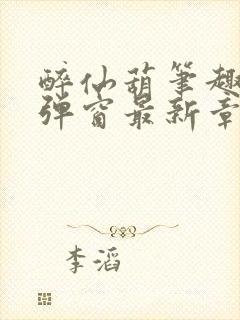 醉仙葫笔趣
弹窗最新章
李滔